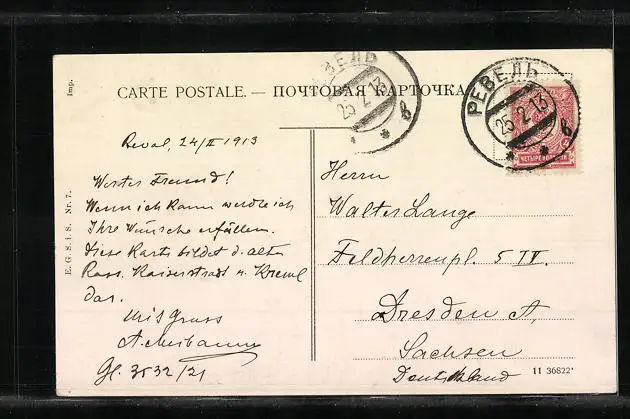 Imp.
CARTE POSTALE. — ПОЧТОВАЯ КАРТОЧКА
РЕВЕЛЬ
25 2 13
в
РЕВЕЛЬ
25.2.13
в
Reval, 24/II 1913
Werter Freund!
Wenn ich kann werde ich
Ihre Wünsche erfüllen.
Diese Karte bildet d. alte
Russ. Kaiserstadt u. Kreml
dar.
Mit Gruss
Gl. 3532/21
Herrn
Walter Lange
Feldherrenpl. 5 IV.
Dresden A.
Sachsen
Deutschland
E. G. S. i. S. Nr. 7.
11 36822*